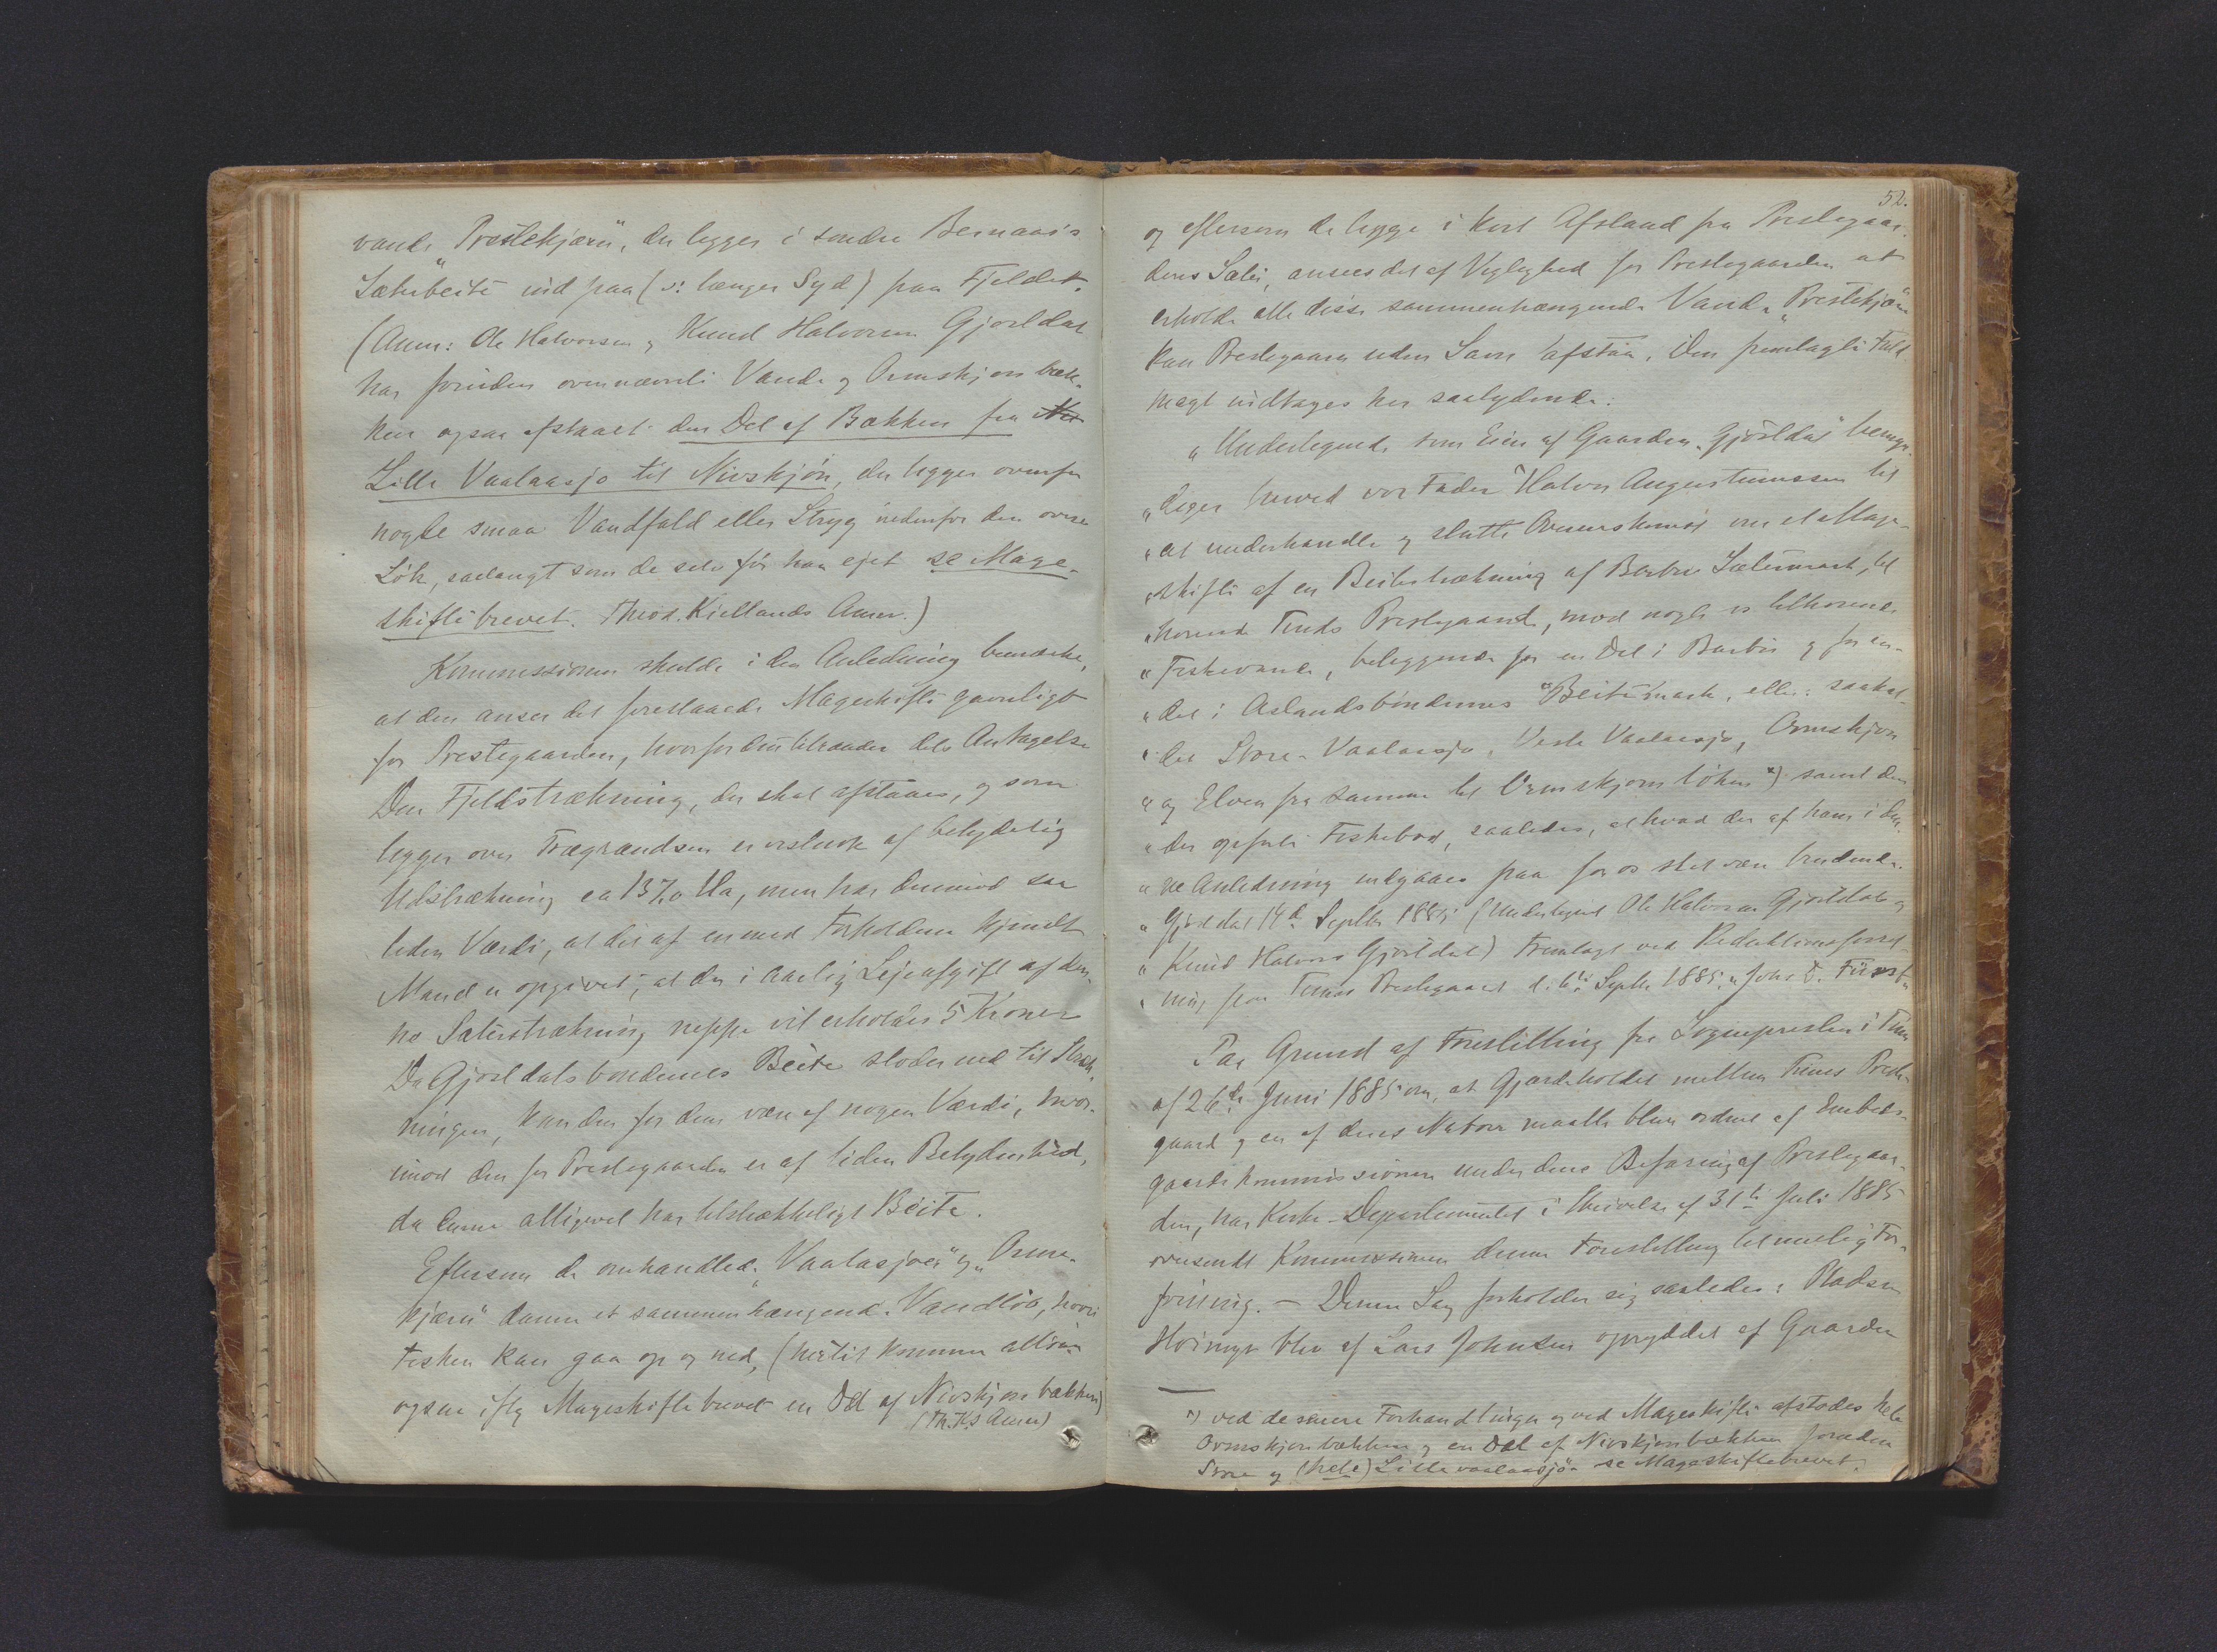 vand „Prestekjærn", der ligger i søndre Bernaas's
Sæterbeite ind paa (ɔ: længer Syd) paa Fjeldet.
(Anm: Ole Halvorsen og Knud Halvorsen Gjøsldal
har foruden ovennævnte Vande og Ormskjønbæk-
ken ogsaa afstaaet den Del af Bækken fra
Lille Vaalaasjø til Nivskjön, der ligger ovenfor
nogle smaa Vandfald eller Stryg nedenfor den øvre
Løk, saalangt som de selv før har ejet se Mage-
skiftebrevet. Theod. Kiellands Anm.)
Kommissionen skulde i den Anledning bemærke,
at den anser det foreslaaede Mageskifte gavnligt
for Prestegaarden, hvorfor den tilraader dets Antagelse
Den Fjeldstrækning, der skal afstaaes, og som
ligger over Trægrændsen er vistnok af betydelig
Udstrækning ca 1370 Ha, men har derimod saa
liden Værdi, at det af en med Forholdene kjendt
Mand er opgivet, at der i aarlig Lejeafgift af den-
ne Sæterstrækning neppe vil erholdes 5 Kroner
Da Gjøsldalsbøndernes Beite støder ned til Stræk-
ningen, kan den for dem være af nogen Værdi, hvor-
imod den for Prestegaarden er af liden Betydenhed,
da denne alligevel har tilstrækkeligt Beite.
Eftersom de omhandlede „Vaalasjøer" og „Orms-
kjærn" danne et sammenhængende Vandløb, hvori
Fisken kan gaa op og ned, (hertil kommer altsaa
ogsaa iflg Mageskiftebrevet en Del af Nivskjønbækken)
(Th. K's Anm)
52.
og eftersom de ligge i kort Afstand fra Prestegaar-
dens Sæter, ansees det af Vigtighed for Prestegaarden at
erholde alle disse sammenhængende Vande. „Prestekjærn"
kan Prestegaarden uden Savn afstaa. Den fremlagte Fuld-
magt indtages her saalydende:
„Undertegnede som Eier af Gaarden „Gjøsldal" bemyn-
„diger herved vor Fader Halvor Augustinussen til
„at underhandle og slutte Overenskomst om et Mage-
„skifte af en Beitestrækning af Borbu Sætermark, til-
„hørende Tinds Prestegaard, mod nogle os tilhørende
„Fiskevande, beliggende for en Del i Borbu og for en
„Del i Aslandsbøndernes Beitemark, eller: saakal-
„det Store-Vaalaasjø, Vesle Vaalaasjø, Ormskjøn
„og Elven fra samme til Ormskjønløken *) samt den
„der opførte Fiskebod, saaledes, at hvad der af ham i den-
„ne Anledning indgaaes paa for os skal være bindende.
„Gjøsldal 14de Septbr 1885 (Undertegnet Ole Halvorsen Gjøsldal og
„Knud Halvors Gjøsldal) Fremlagt ved
Tinds Prestegaard d. Septbr 1885. „Johs
Paa Grund af Forestilling fra Sognepresten i Tinn
af 26de Juni 1885 om, at Gjærdeholdet mellem Tinns Preste-
gaard og en af dens Naboer maatte blive ordnet af Embeds-
gaardskommissionen under dens Befaring af Prestegaar-
den, har Kirke-Departementet i Skrivelse af 31te Juli 1885
oversendt Kommissionen denne Forestilling til mulig For-
føining. — Denne Sag forholder sig saaledes: Pladsen
blev af Lars Johnsen opryddet af Gaarden
*) ved de senere Forhandlinger og ved Mageskifte afstodes hele
Ormskjønbækken og en Del af Nivskjønbækken foruden
Store og (hele) Lillevaalaasjön se Mageskiftebrevet.